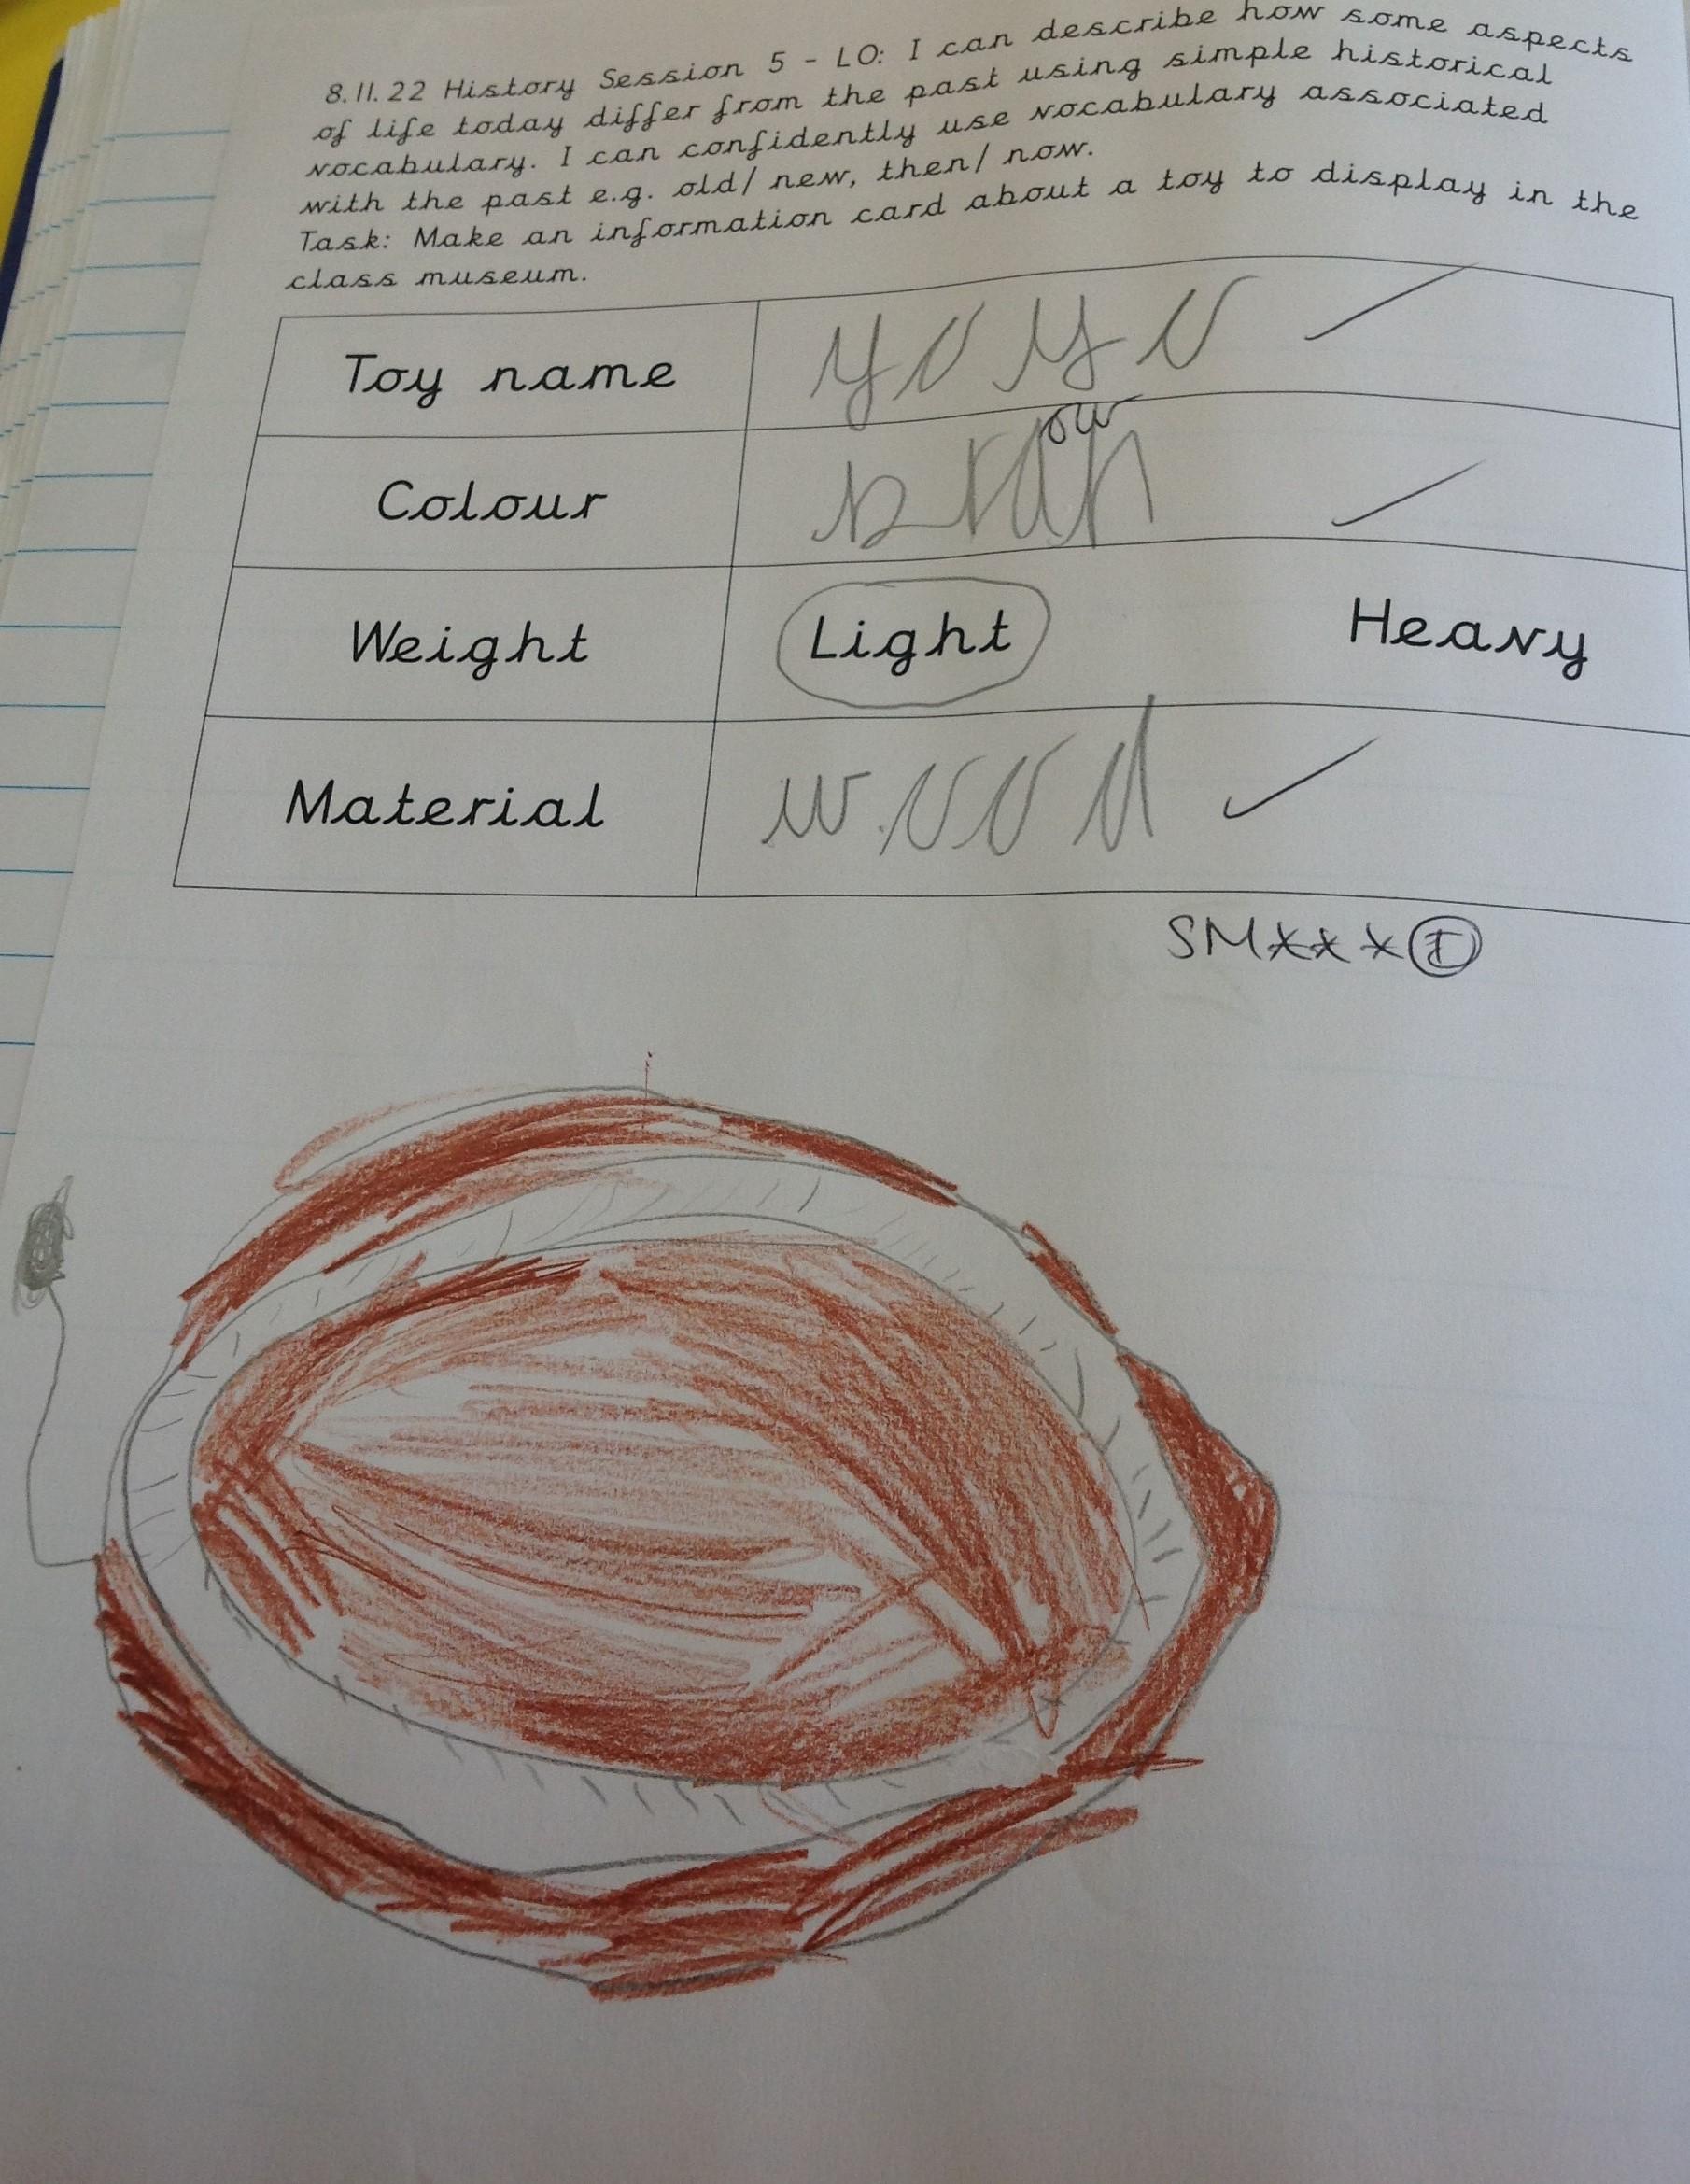 8.11.22 History Session 5 - LO: I can describe how some aspects
of life today differ from the past using simple historical
vocabulary. I can confidently use vocabulary associated
with the past e.g. old/ new, then/ now.
Task: Make an information card about a toy to display in the
class museum.
Toy name yoyo
ow
Colour bran
Weight Light Heavy
Material wood
SM*** I